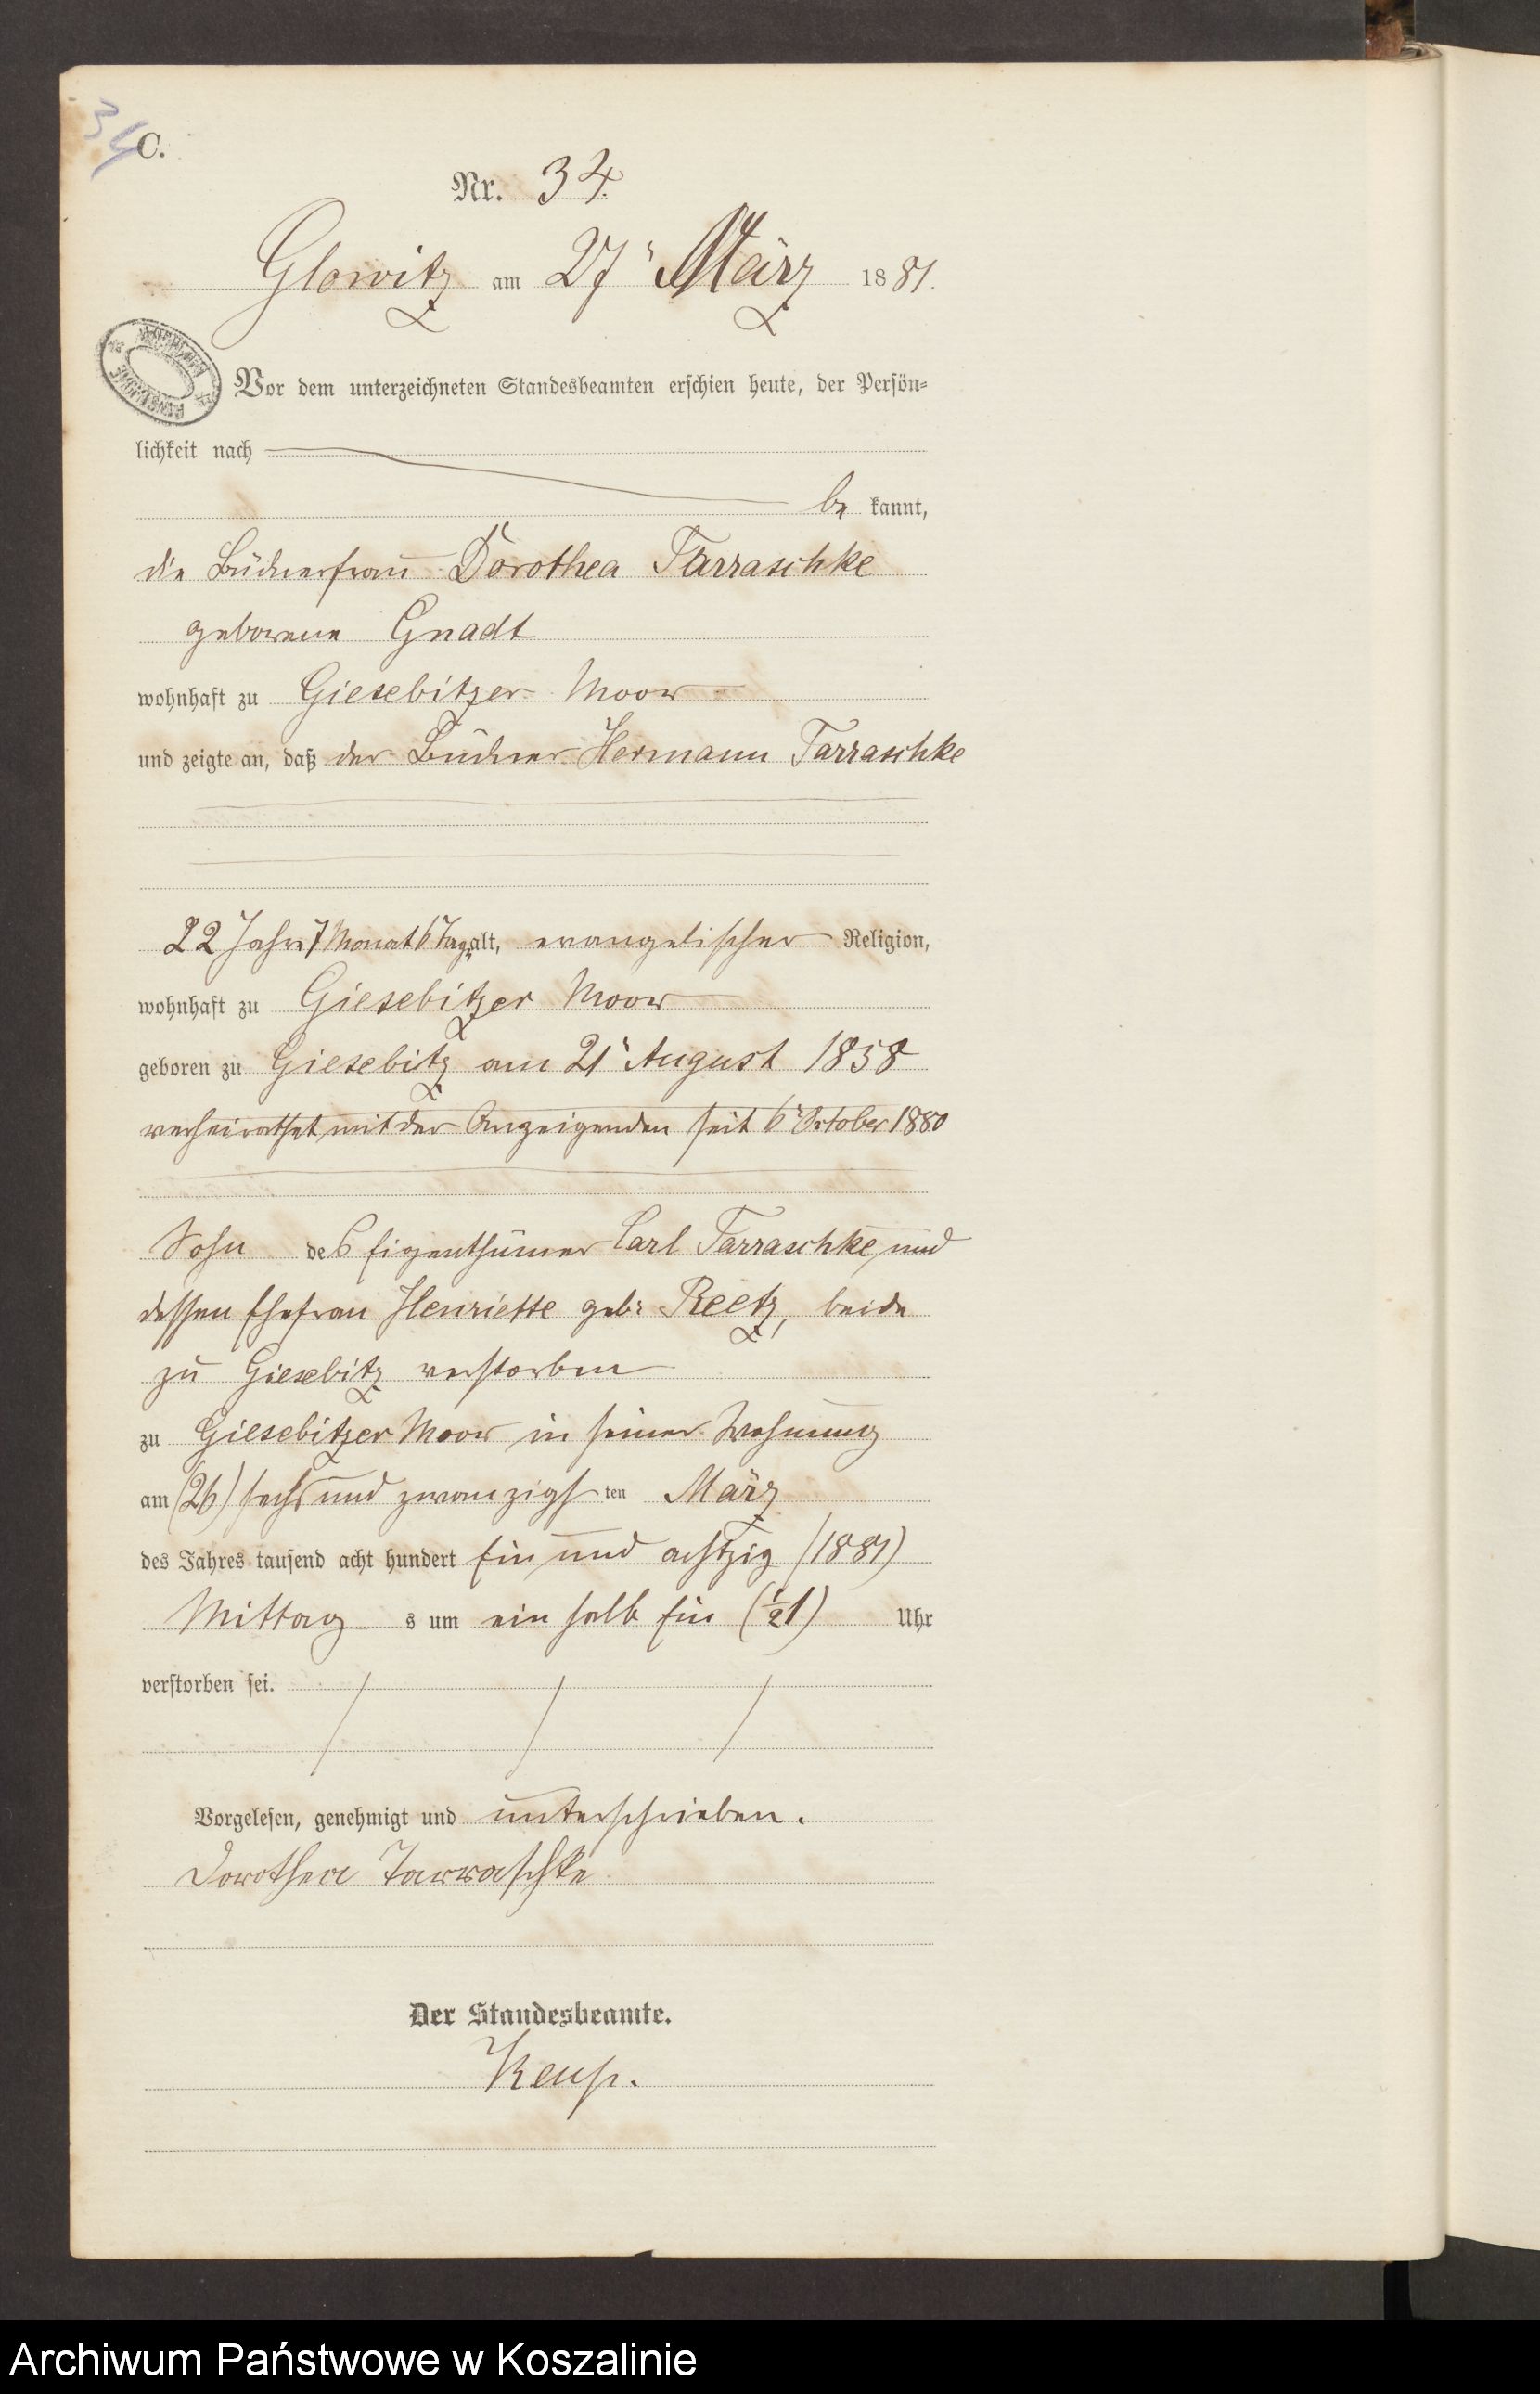 34
C.
Nr. 34.
Glowitz am 27ᵗ März 1881.
Vor dem unterzeichneten Standesbeamten erschien heute, der Persön-
lichkeit nach
be kannt,
die Büdnerfrau Dorothea Tarraschke
geborene Gnadt
wohnhaft zu Giesebitzer Moor
und zeigte an, daß der Büdner Hermann Tarraschke
22 Jahre 7 Monat 6 Tage alt, evangelischer Religion,
wohnhaft zu Giesebitzer Moor
geboren zu Giesebitz am 21ᵗ August 1858
verheirathet mit der Anzeigenden seit 6ᵗ October 1880
Sohn des Eigenthümer Carl Tarraschke und
dessen Ehefrau Henriette geb: Reetz, beide
zu Giesebitz verstorben
zu Giesebitzer Moor in seiner Wohnung
am (26) sechs und zwanzigsten März
des Jahres tausend acht hundert Ein und achtzig (1881)
Mittags um ein halb Ein (½1) Uhr
verstorben sei.
Vorgelesen, genehmigt und unterschrieben.
Dorothea Tarraschke
Der Standesbeamte.
Archiwum Państwowe w Koszalinie